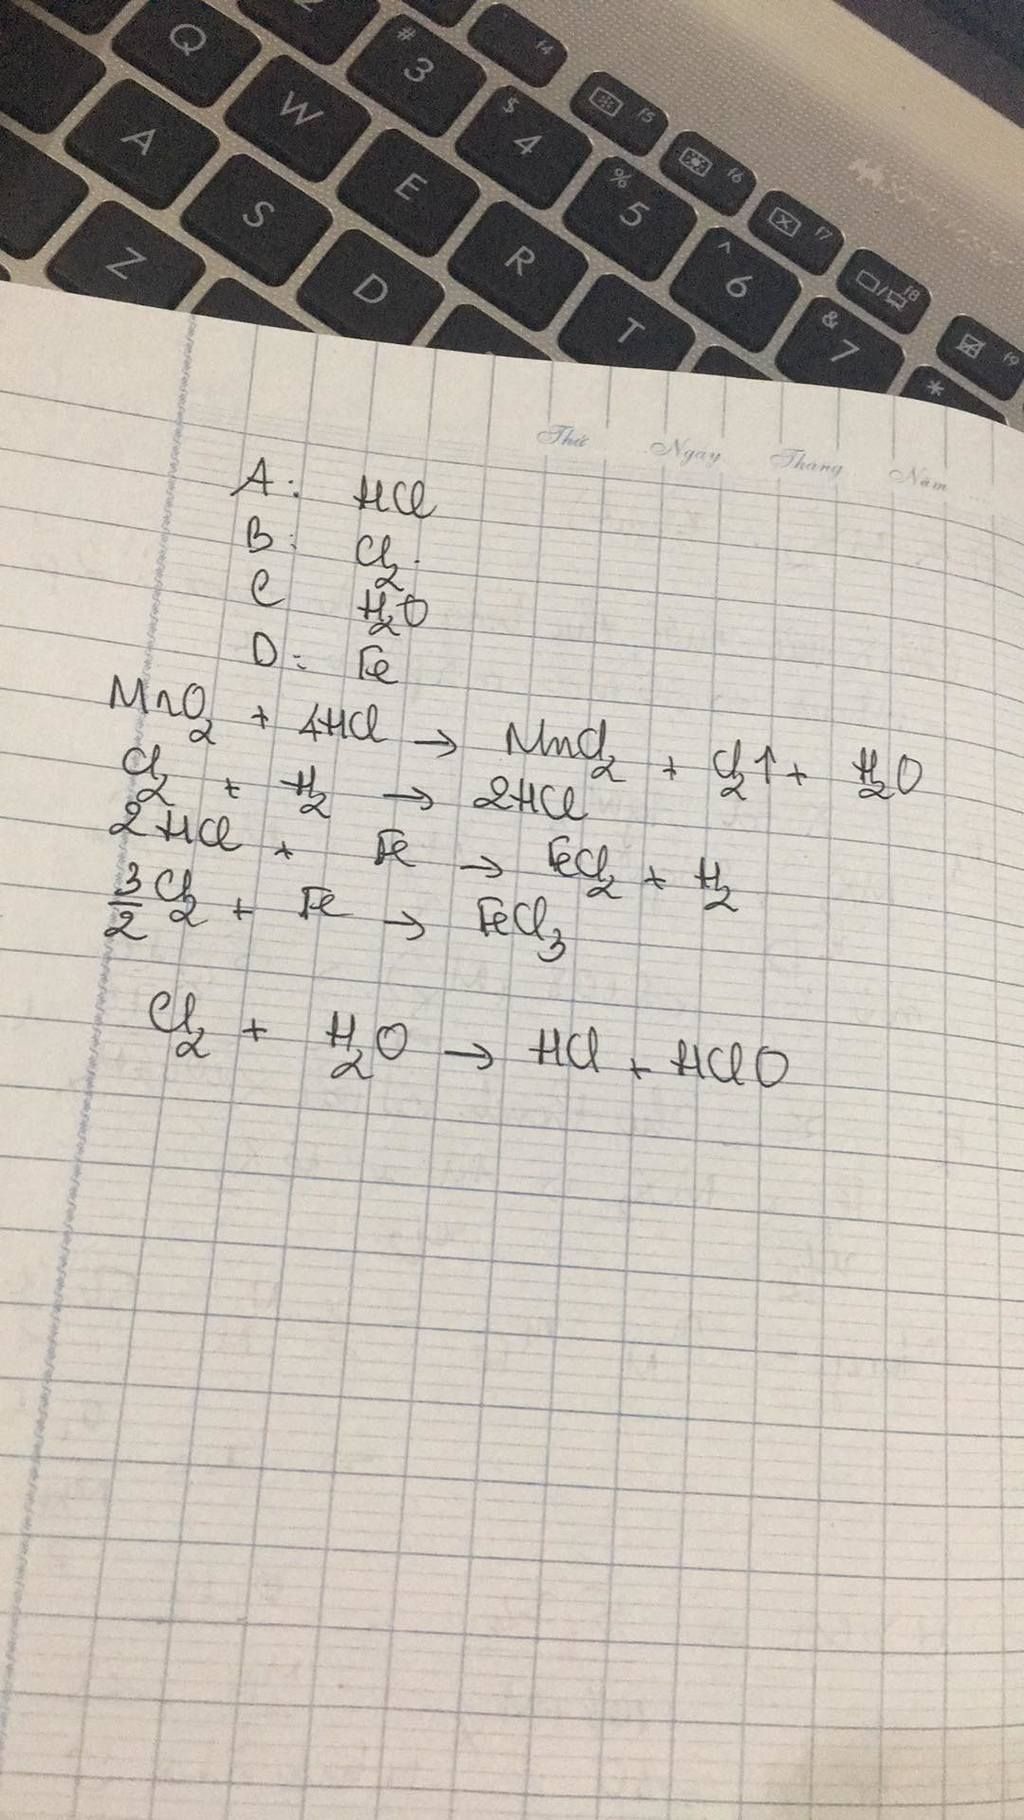 f4
# 3
Q
$ 4
f5
W
A
% 5
f6
E
S
^ 6
f7
R
Z
D
& 7
f8
T
*
f9
Thứ Ngày Tháng Năm
A: HCl
B: Cl₂.
C H₂O
D: Fe
MnO₂ + 4HCl → MnCl₂ + Cl₂↑ + H₂O
Cl₂ + H₂ → 2HCl
2HCl + Fe → FeCl₂ + H₂
3/2 Cl₂ + Fe → FeCl₃
Cl₂ + H₂O → HCl + HClO